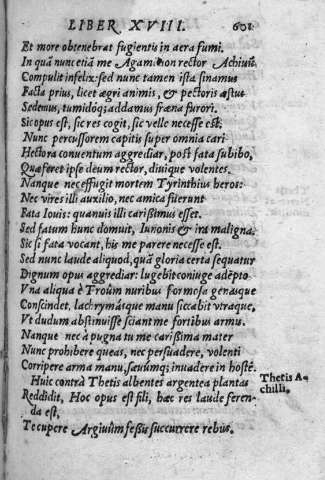 LIBER XVIII. 601
Et more obtenebrat fugientis in aera fumi.
In quā nunc etiā me Agamemnon rector Achiuū
Compulit infelix: sed nunc tamen ista sinamus
Facta prius, licet ægri animis, & pectoris æstus
Sedemus, tumidoq; addamus fræna furori.
Sic opus est, sic res cogit, sic velle necesse est;
Nunc percussorem capitis super omnia cari
Hectora conuentum aggrediar, post fata subibo,
Quæferet ipse deum rector, diuique volentes.
Nanque nec effugit mortem Tyrinthius heros:
Nec vires illi auxilio, nec amica fuerunt
Fata Iouis: quanuis illi carißimus esset.
Sed fatum hunc domuit, Iunonis & ira maligna.
Sic si fata vocant, his me parere necesse est.
Sed nunc laude aliquod, quā gloria certa sequatur
Dignum opus aggrediar: lugebit coniuge adēpto
Vna aliqua è Troūm nuribus formosa genasque
Conscindet, lachrymásque manu siccabit vtraque,
Vt dudum abstinuisse sciant me fortibus armis.
Nanque nec à pugna tu me carißima mater
Nunc prohibere queas, nec persuadere, volenti
Corripere arma manu, sæuumq; inuadere in hostē.
Huic contrà Thetis albentes argentea plantas
Thetis A-
chilli.
Reddidit, Hoc opus est fili, hæc res laude feren-
da est,
Te cupere Argiuûm feßis succurrere rebus.